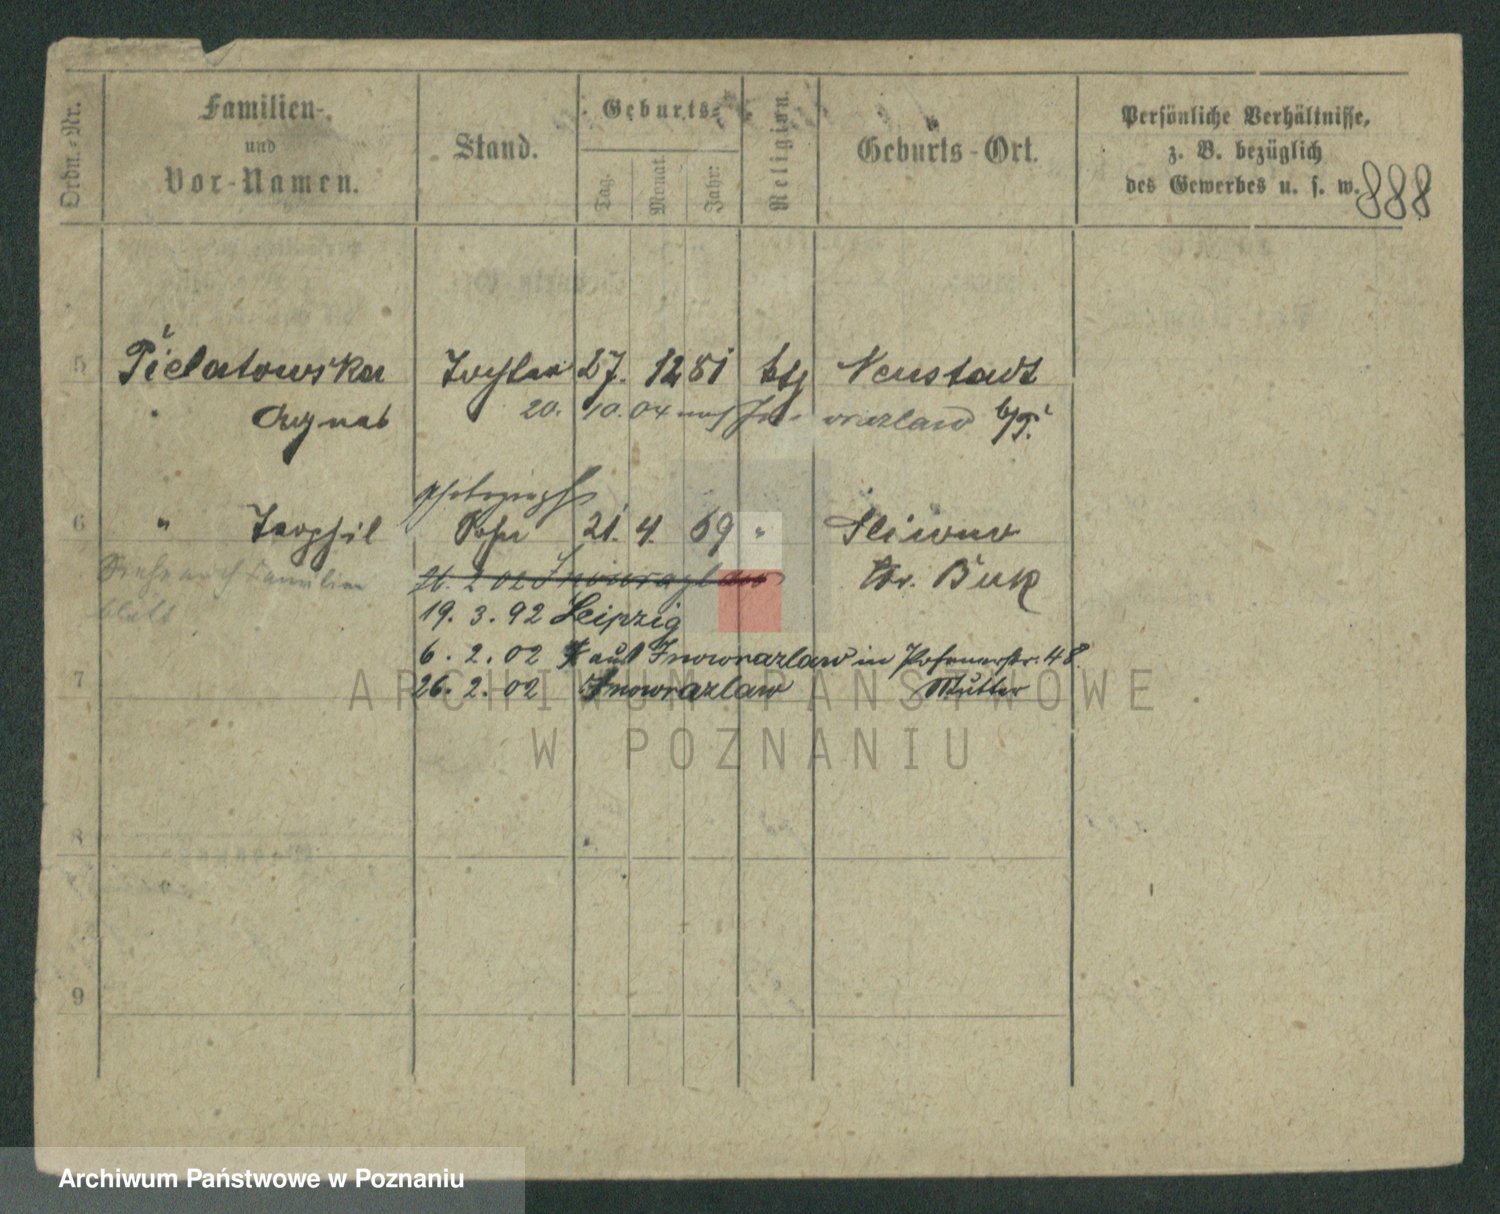 Ordn.-Nr.
Familien-
und
Vor-Namen.
Stand.
Geburts-
Tag.
Monat
Jahr:
Religion.
Geburts-Ort.
Persönliche Verhältnisse,
z. B. bezüglich
des Gewerbes u. s. w.
888
5 Pielatowska Tochter 27. 12 81 ktg Neustadt
Agnes 20. 10. 04 nach Ino- wrazlaw
photograph
6 " Teophil Sohn 21. 4. 69 " Sliwno
Siehe auch Familien
blatt
2 02 Inowrazlaw
Kr. Buk
19. 3. 92 Leipzig
6. 2. 02 aus Inowrazlaw in Posenerstr. 48
7 26. 2. 02 Inowrazlaw Mutter
8
9
ARCHIWUM PAŃSTWOWE
W POZNANIU
Archiwum Państwowe w Poznaniu